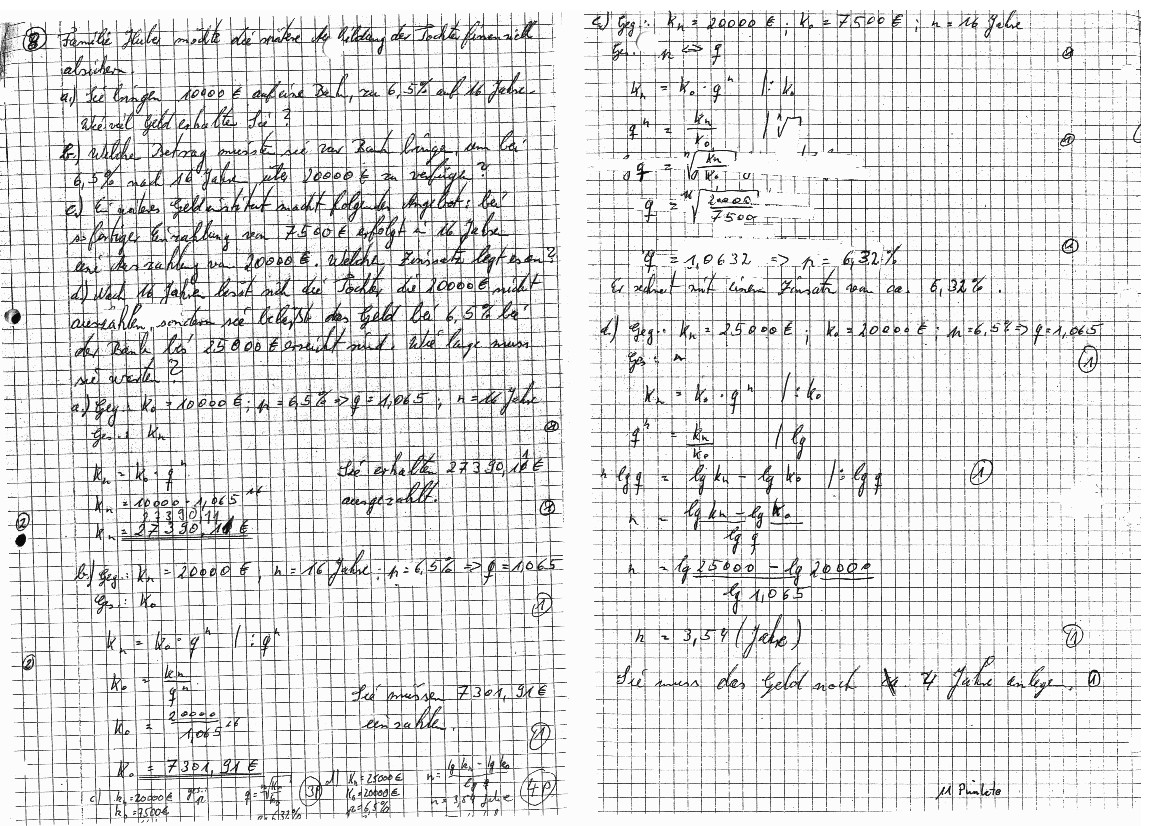 8 Familie Huber möchte die spätere Ausbildung der Tochter finanziell
absichern.
a.) Sie bringen 10000 € auf eine Bank, zu 6,5% auf 16 Jahre.
Wie viel Geld erhalten Sie?
b.) Welchen Betrag müssten sie zur Bank bringen, um bei
6,5% nach 16 Jahre über 20000 € zu verfügen?
c.) Ein anderes Geldinstitut macht folgendes Angebot: bei
sofortiger Einzahlung von 7500 € erfolgt in 16 Jahren
eine Auszahlung von 20000 €. Welchen Zinssatz legt es an?
d.) Nach 16 Jahren lässt sich die Tochter die 20000 € nicht
auszahlen, sondern sie belässt das Geld bei 6,5% bei
der Bank bis 25000 € erreicht sind. Wie lange muss
sie warten?
a.) Geg.: K₀ = 10000 €; p = 6,5% => q = 1,065; n = 16 Jahre
Ges.: Kn
Kn = K₀ · qⁿ
Kn = 10000 · 1,065¹⁶
27390,11
Kn = 27390,11 €
Sie erhalten 27390,10 €
ausgezahlt.
2
b.) Geg.: Kn = 20000 €, n = 16 Jahre; p = 6,5% => q = 1,065
Ges.: K₀
1
Kn = K₀ · qⁿ | : qⁿ
K₀ = Kn / qⁿ
K₀ = 20000 / 1,065¹⁶
K₀ = 7301,91 €
Sie müssen 7301,91 €
einzahlen.
1
c) Kn = 20000 € ges.: p
K₀ = 7500 €
q = ⁿ√Kn/K₀
p = 6,32%
3P
d) Kn = 25000 €
K₀ = 20000 €
p = 6,5%
n = lg Kn - lg K₀ / lg q
n = 3,54 Jahre
4P
c.) Geg.: Kn = 20000 €; K₀ = 7500 €; n = 16 Jahre
Ges.: p <=> q
Kn = K₀ · qⁿ | : K₀
qⁿ = Kn / K₀ | ⁿ√
q = ⁿ√Kn/K₀
q = ¹⁶√20000/7500
q = 1,0632 => p = 6,32%
Er rechnet mit einem Zinssatz von ca. 6,32%.
d.) Geg.: Kn = 25000 €; K₀ = 20000 €; p = 6,5% => q = 1,065
Ges.: n
1
Kn = K₀ · qⁿ | : K₀
qⁿ = Kn / K₀ | lg
n lg q = lg Kn - lg K₀ | : lg q
1
n = lg Kn - lg K₀ / lg q
n = lg 25000 - lg 20000 / lg 1,065
n = 3,54 (Jahre)
1
Sie muss das Geld noch ca. 4 Jahre anlegen.
1
11 Punkte